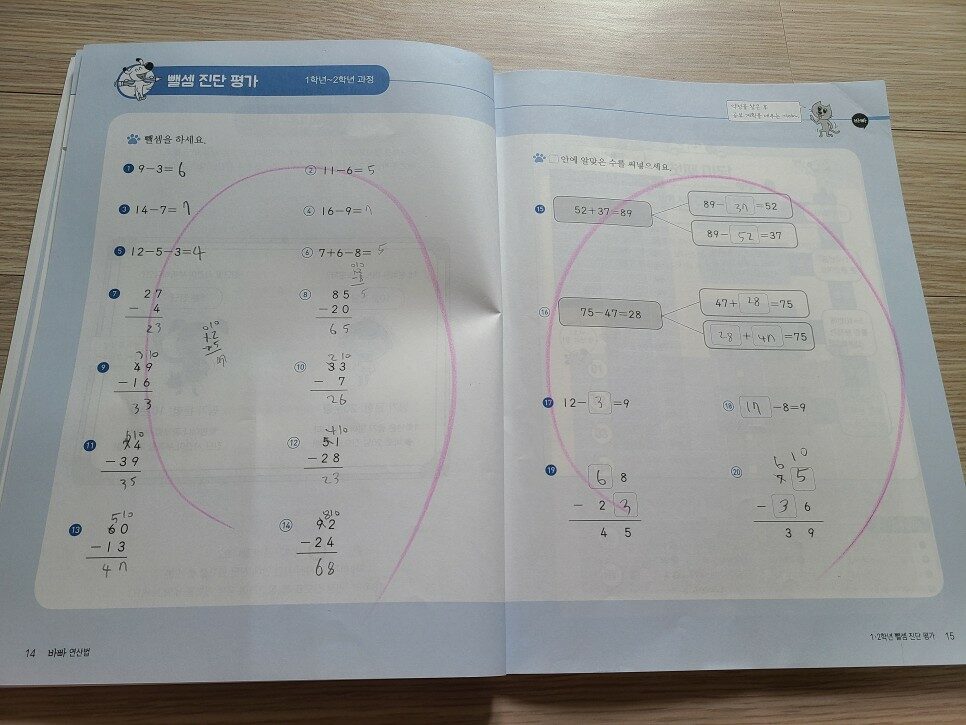 뺄셈 진단 평가
1학년~2학년 과정
뺄셈을 하세요.
1 9-3=6
2 11-6=5
3 14-7=7
4 16-9=7
5 12-5-3=4
6 7+6-8=5
7 27
- 4
23
8 85
-20
65
9 49
-16
33
10 2 10
33
- 7
26
11 6 10
74
-39
35
12 4 10
51
-28
23
13 5 10
60
-13
47
14 8 10
92
-24
68
14 바빠 연산법
바빠
□ 안에 알맞은 수를 써넣으세요.
15 52+37=89
89-37=52
89-52=37
16 75-47=28
47+28=75
28+47=75
17 12-3=9
18 17-8=9
19 68
- 23
45
20 6 10
75
- 36
39
1·2학년 뺄셈 진단 평가 15